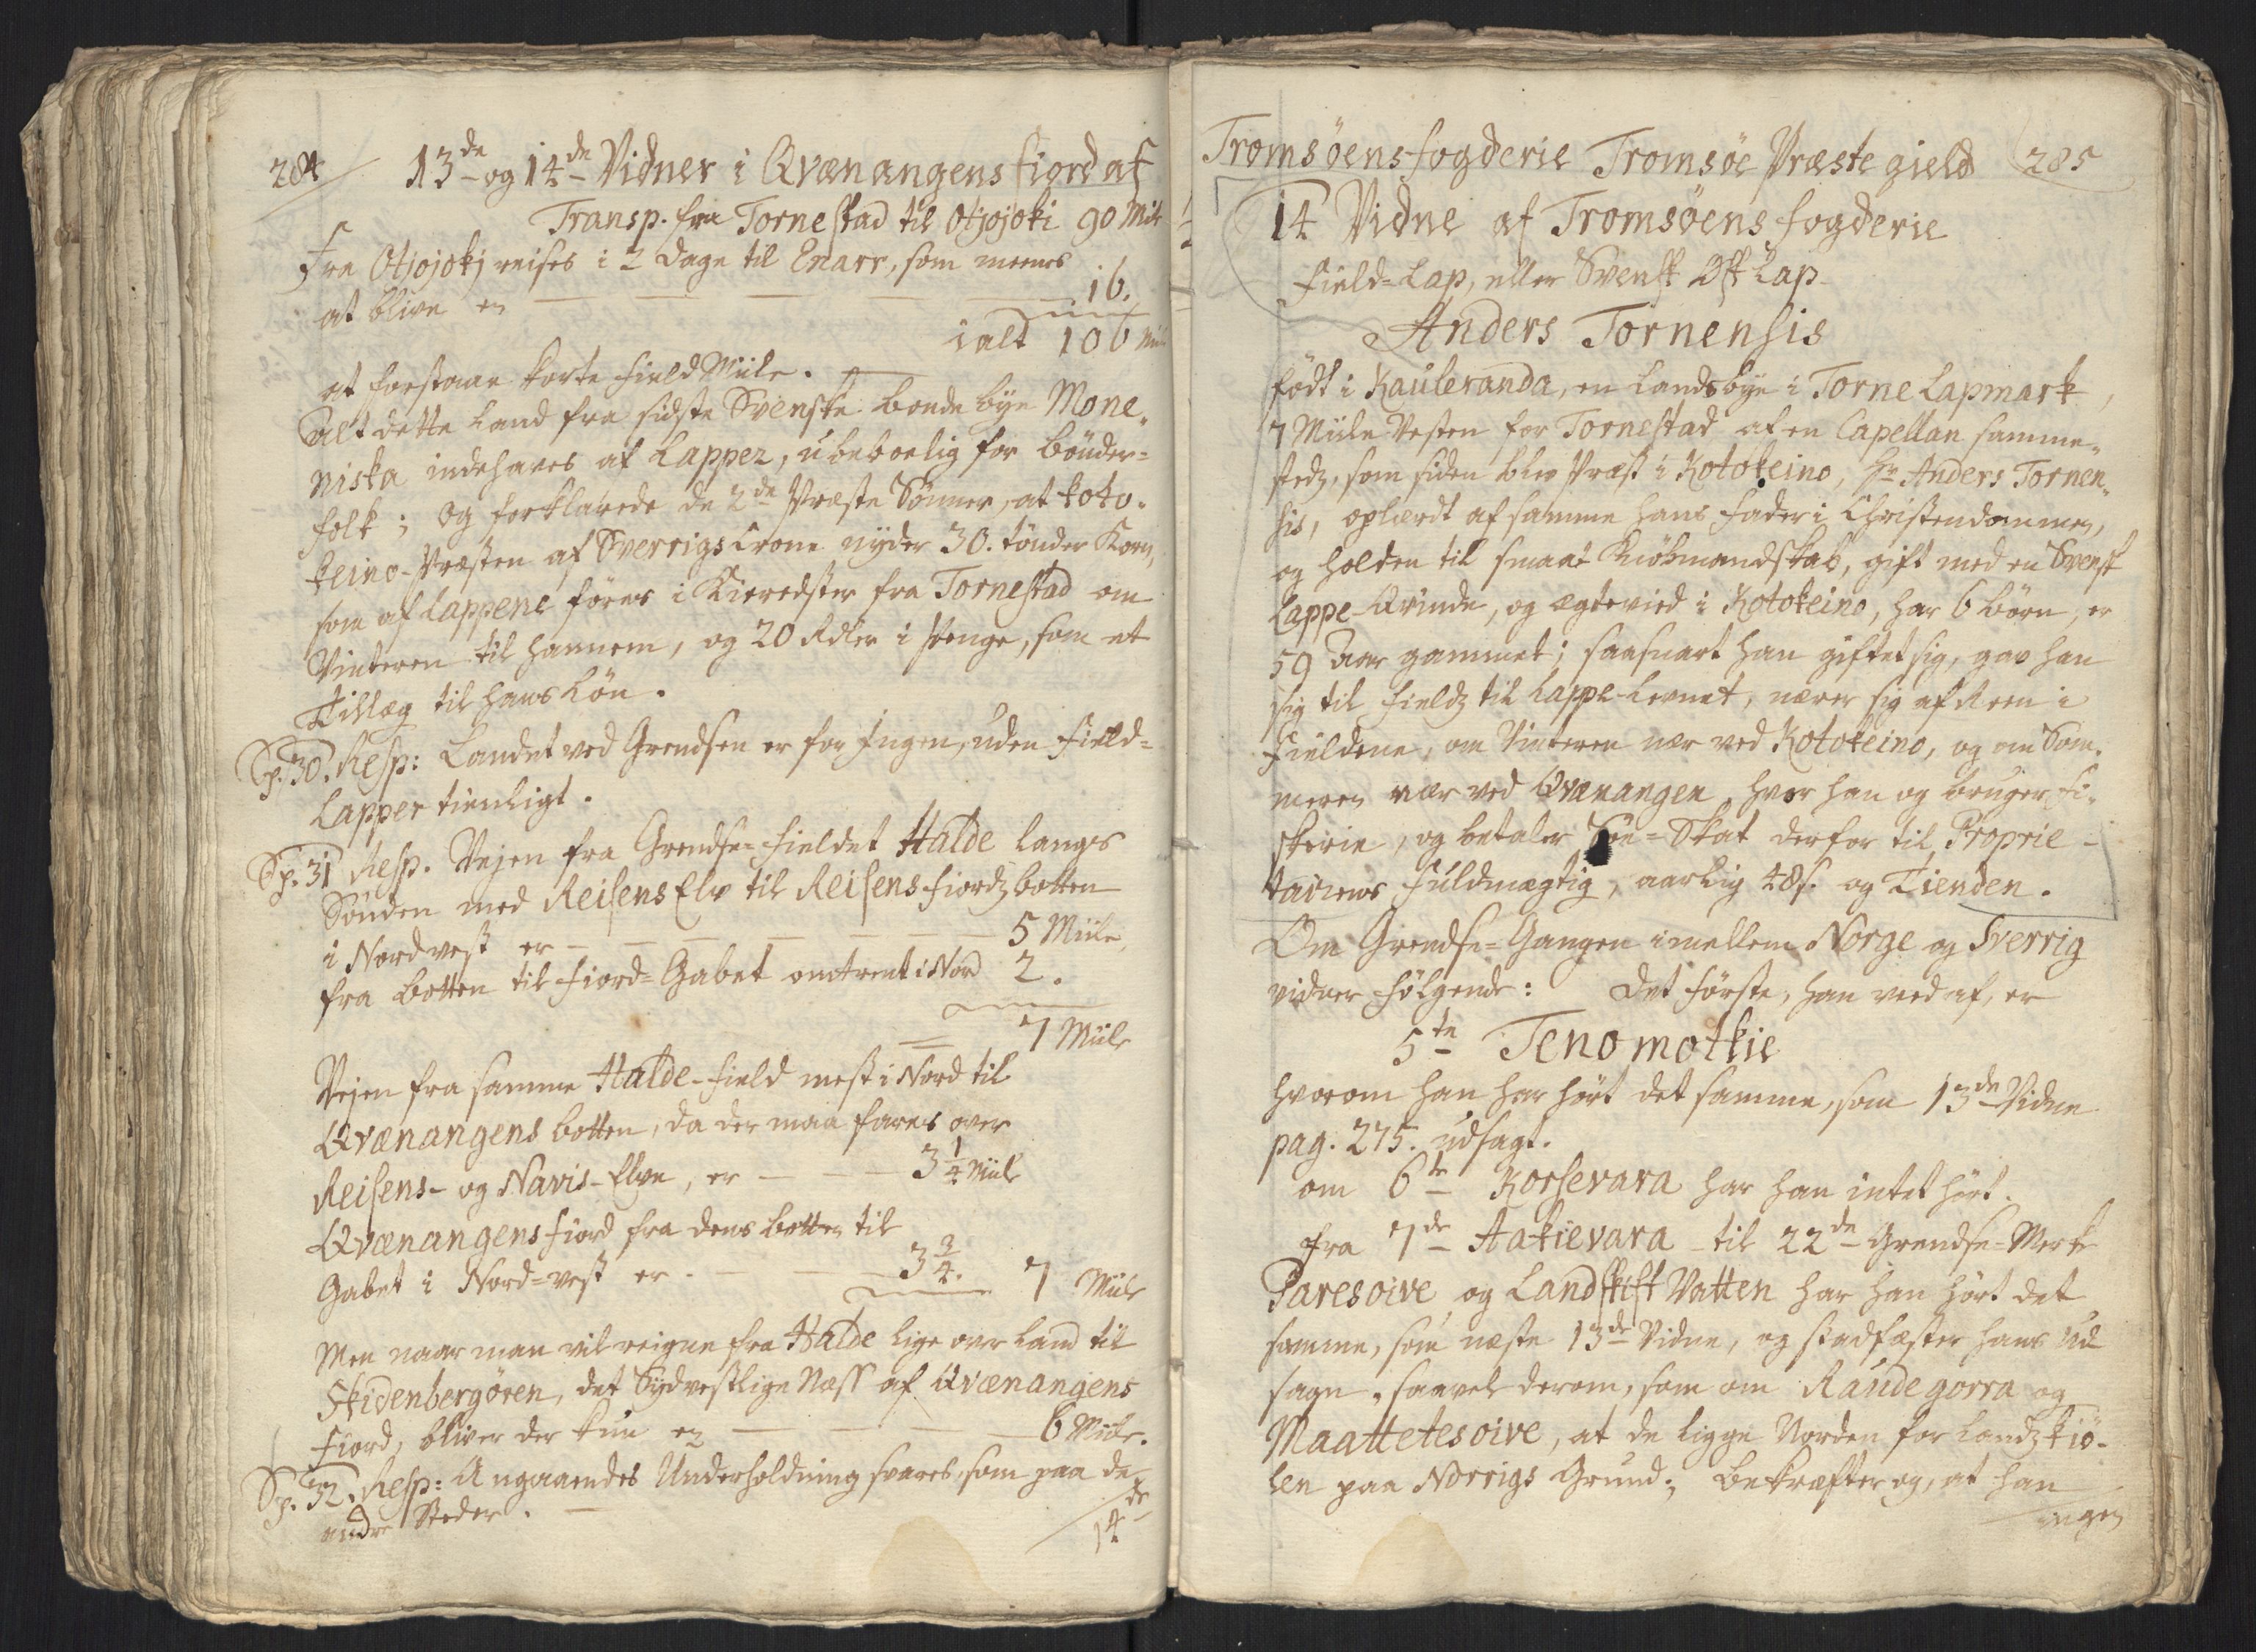 284
13de og 14de Vidner i Qvænangens fiord af
Transp. fra Tornestad til Otjojoki 90 Miile
Fra Otjojokj reises i 2 dage til Enarr, som meenes
at blive en — — — — — 16.
ialt 106 Miil
at forstaae korte Field Miile.
Alt dette Land fra sidste Svenske bonde bÿe Mone„
niska indehaves af Lapper, ubeboelig for bönder=
folk; Og forklarede de 2de Præste Sönner, at koto-
keino-Præsten af Sverrigs Crone nÿder 30. tönder Korn,
som af Lappene föres i Kieredser fra Tornestad om
Vinteren til hannem, og 20 Rdler i Penge, som et
Tillæg til hans Lön.
Sp. 30. Resp: Landet ved Grendsen er for Ingen, uden Field=
Lapper tienligt.
Sp. 31 Resp. Vejen fra Grendse-fieldet Halde langs
Sönden med Reisens Elv til Reisens fiordz botten
i Nordvest er — — — — — 5 Miile
fra botten til fiord=Gabet omtrent i Nord 2.
7 Miile
Vejen fra samme Halde-field mest i Nord til
Qvænangens botten, da der maa fares over
Reisens- og Navis-Elve, er — — 3 1/4 Miile
Qvænangens fiord fra dens botten til
Gabet i Nord=vest er . — — 3 3/4. 7 Miile
Men naar man vil reigne fra Halde lige over land til
Skidenbergören, det Sydvestlige Næss af Qvænangens
fiord, bliver der kun en — — — 6 Miile.
Sp. 32. Resp: Angaaendes Underholdning svares, som paa de
andre Steder. —
14de
Tromsöens fogderie Tromsöe Præstegield 285
14 Vidne af Tromsöens fogderie
Field=Lap, eller Svensk Öst Lap
Anders Tornensis
födt i Kauleranda, en Landsbÿe i Torne Lapmark,
7 Miile Vesten for Tornestad af en Capellan samme„
stedz, som siden blev Præst i Kotokeino, Hr Anders Tornen„
sis, oplærdt af samme hans fader i Christendommen,
og holden til smaat Kiöbmandskab, gift med en Svensk
Lappe-Qvinde, og ægtevied i Kotokeino, har 6 börn, er
59 Aar gammel; saasnart han giftet sig, gav han
sig til fieldz til Lappe-Levnet, nærer sig af Reen i
Fieldene, om Vinteren nær ved Kotokeino, og om Som„
meren nær ved Qvænangen, hvor han og bruger fi„
skerie, og betaler Söe=Skat derfor til Proprie-
tairens fuldmægtig, aarlig 48s. og Tienden.
Om Grendse=Gangen imellem Norge og Sverrig
vidner fölgende: Det förste, han veed af, er
5te Tenomotkie
hvorom han har hört det samme, som 13de Vidne
pag. 275. udsagt.
om 6te Korsevara har han intet hört.
fra 7de Aakievara til 22de Grendse=Merke
Paresoive og Landskift Vatten har han hört det
samme, som næste 13de Vidne, og stadfæster hans Ud
sagn, saavel derom, som om Raudegorra og
Maattetesoive, at de ligge Norden for Landzkiö-
len paa Norrigs Grund; bekræfter og, at han
ingen